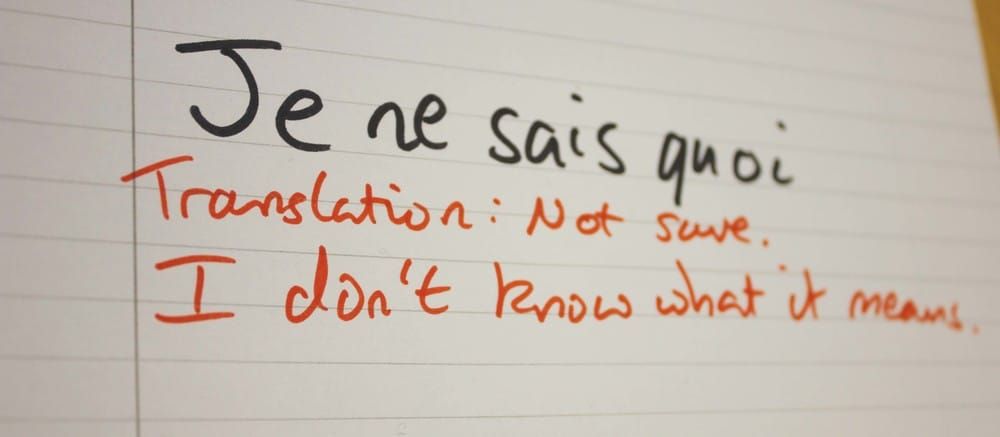 Je ne sais quoi
Translation: Not sure.
I don't know what it means.